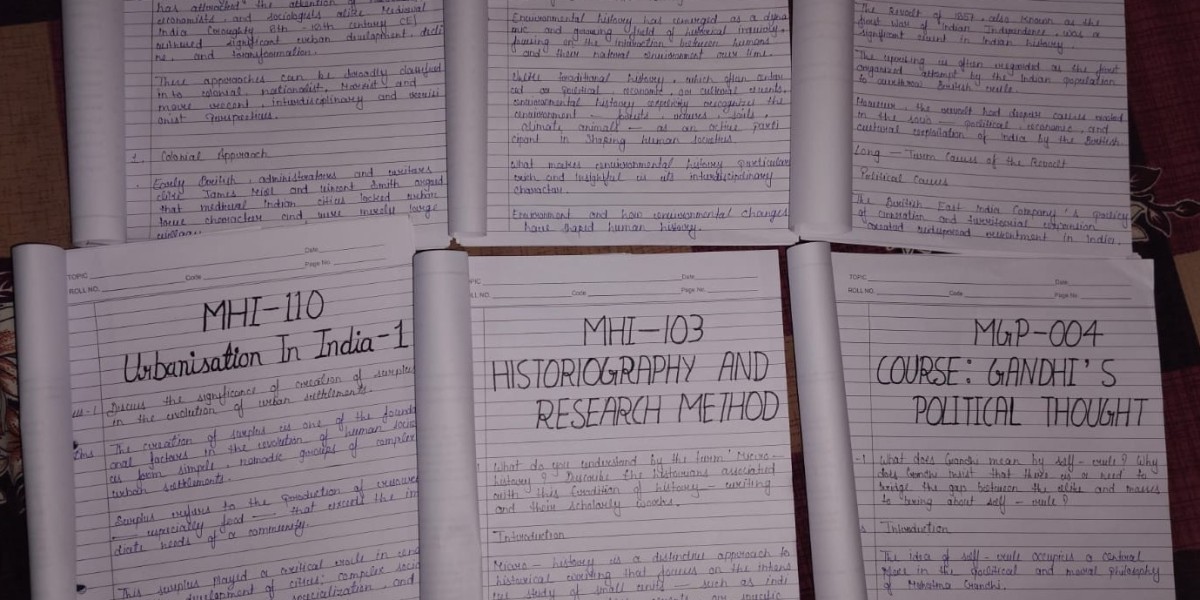 has attracted the attention of
economists, and sociologists alike Medieval
India (roughly 8th - 18th century CE)
witnessed significant urban development, decli
ne, and transformation.
These approaches can be broadly classified
in to colonial, nationalist, Marxist and
more recent, interdisciplinary and revisi
onist perspectives.
1. Colonial Approach
Early British administrators and writers
like James Mill and Vincent Smith argued
that medieval Indian cities lacked urban
true character and were merely large
villages
Environmental history has emerged as a dyna
mic and growing field of historical inquiry,
focusing on the interaction between humans
and their natural environment over time.
Unlike traditional history, which often center
ed on political, economic, or cultural events,
environmental history explicitly recognizes the
environment — forests, rivers, soils,
climate animals — as an active parti
cipant in shaping human societies.
What makes environmental history particular
rich and insightful is its interdisciplinary
character.
Environment and how environmental changes
have shaped human history.
The Revolt of 1857, also known as the
first War of Indian Independence, was a
significant event in Indian history.
The uprising is often regarded as the first
organised attempt by the Indian population
to overthrow British rule.
However, the revolt had deeper causes rooted
in the socio — political, economic, and
cultural exploitation of India by the British
Long — Term Causes of the Revolt
Political Causes
The British East India Company's policy
of annexation and territorial expansion
created widespread resentment in India.
TOPIC Date
ROLL NO. Code Page No.
MHI-110
Urbanisation In India-1
ues-1 Discuss the significance of creation of surplus
in the evolution of urban settlements.
Ans The creation of surplus is one of the founda
onal factors in the evolution of human socie
as form simple, nomadic groups of complex
urban settlements.
Surplus refers to the production of resource
— especially food — that exceed the im
diate needs of a community.
This surplus played a critical role in
development of cities; complex socie
specialization, and
PIC Date
LL NO. Code Page No.
MHI-103
HISTORIOGRAPHY AND
RESEARCH METHOD
What do you understand by the term 'Micro—
history'? Describe the historians associated
with this tradition of history — writing
and their scholarly works.
Introduction
Micro — history is a distinctive approach to
historical writing that focuses on the intens
ive study of small units — such as indi
specific
TOPIC Date
ROLL NO. Code Page No.
MGP-004
COURSE: GANDHI'S
POLITICAL THOUGHT
-1 What does Gandhi mean by self-rule? Why
does Gandhi insist that there is a need to
bridge the gap between the elite and masses
to bring about self-rule?
Introduction
The idea of self-rule occupies a central
place in the political and moral philosophy
of Mahatma Gandhi.